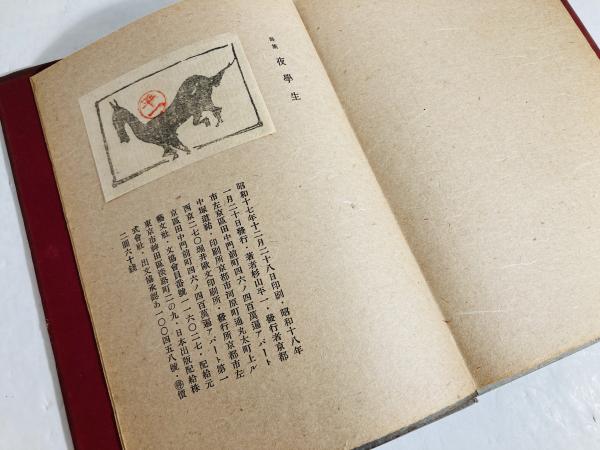 詩集 夜學生
平一
昭和十七年十二月二十八日印刷・昭和十八年
一月二十日發行・著者杉山平一・發行者京都
市左京區田中門前町四六ノ四百萬遍アパート
中塚道祐・印刷所京都市河原町通丸太町上ル
西京二七〇堀井歐文印刷所・發行所京都市左
京區田中門前町四六ノ四百萬遍アパート第一
藝文社・文協會員番號一一六〇二七・配給元
東京市神田區淡路町二の九・日本出版配給株
式會社・出文協承認あ一〇〇四五八號・㊞價
二圓六十錢